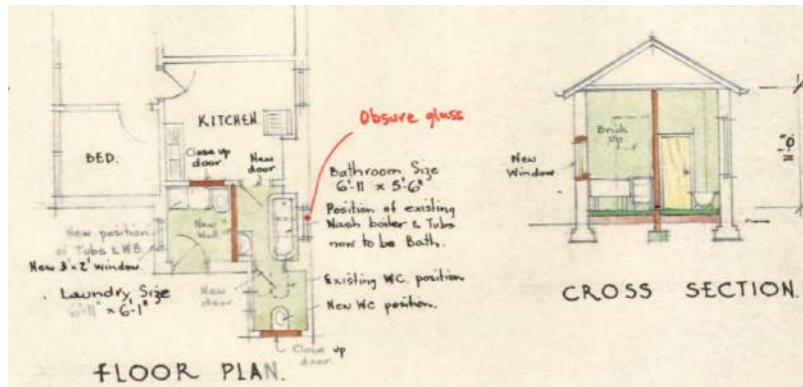 KITCHEN
Obsure glass
BED.
Close up
door
New
door
Bathroom Size
6'-11" x 5'-6"
Position of existing
Wash boiler & Tubs
now to be Bath.
New
Wall
New position
of Tubs & W.B.
New 3' x 2' window.
Laundry Size
6'-11" x 6'-1"
New
door
Existing WC. position
New WC position.
Close up
door.
FLOOR PLAN.
Brick
up
New
Window
CROSS SECTION.